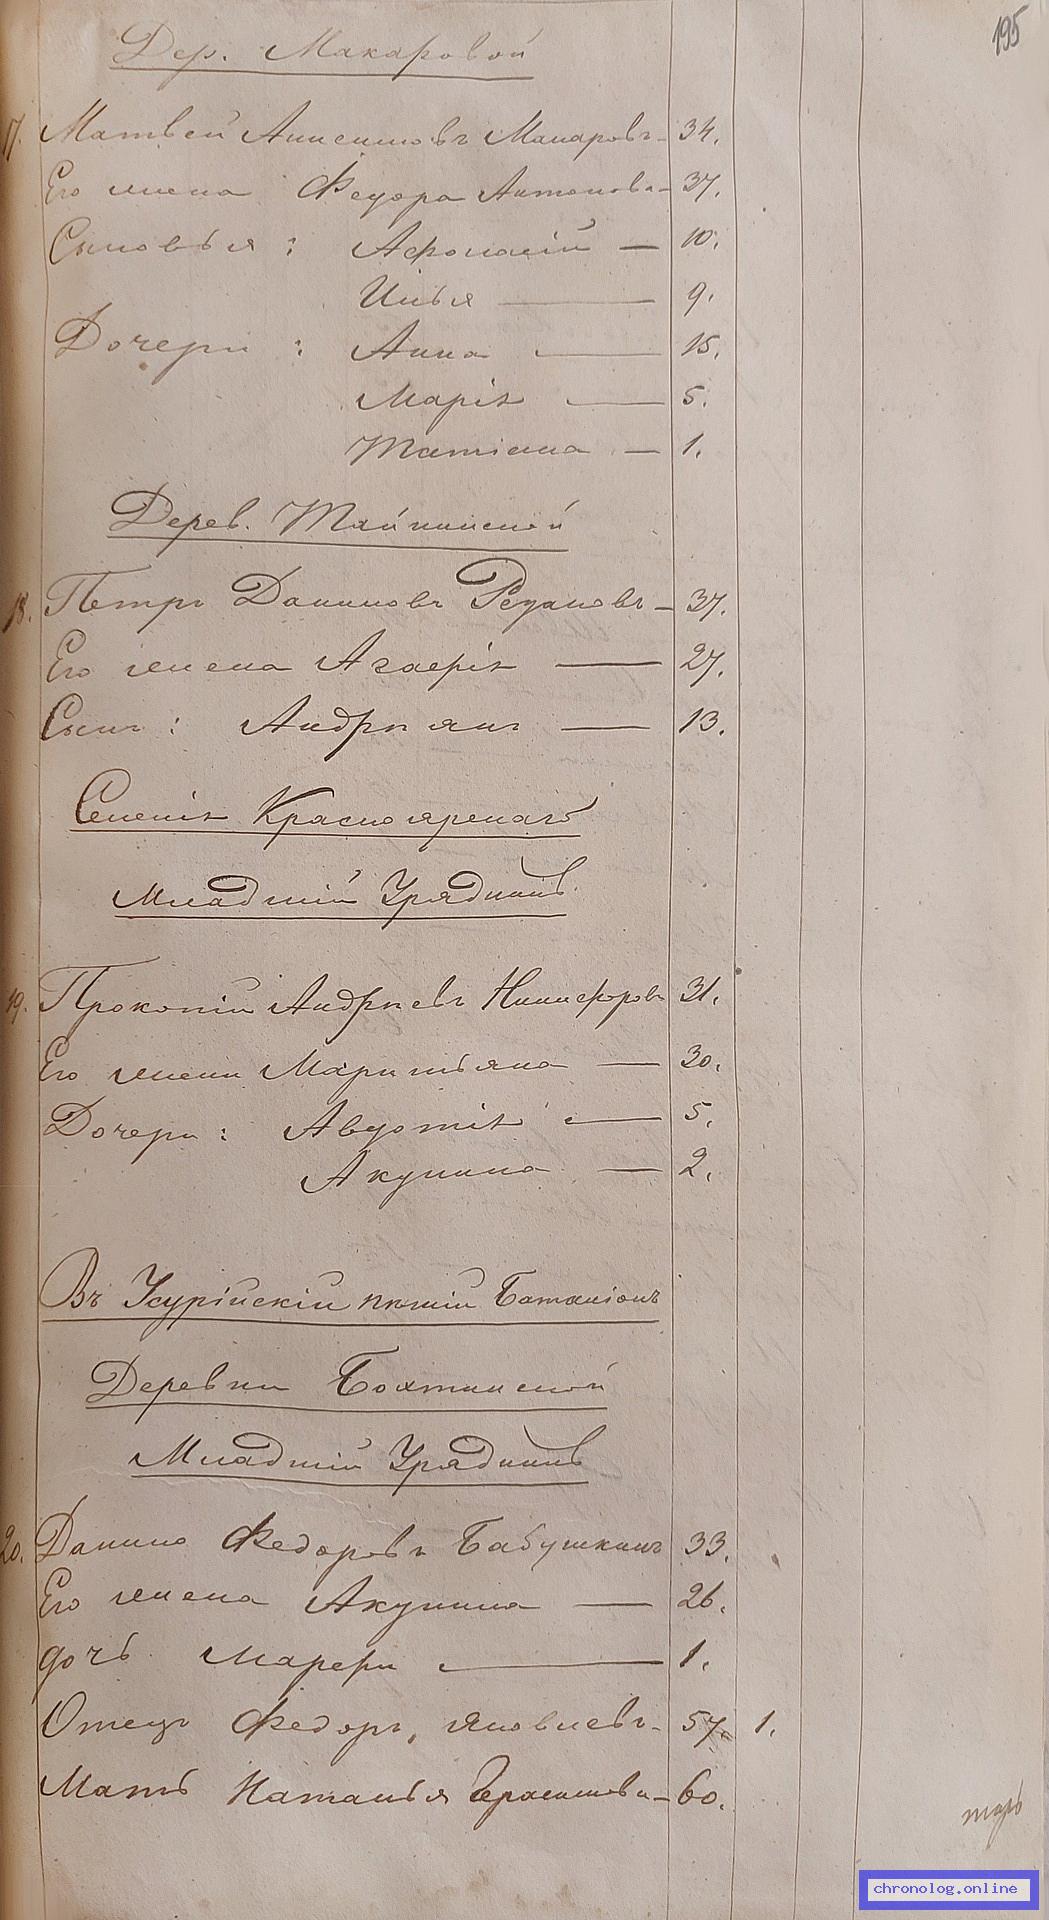 195
Дер. Макаровой
17. Матвей Анисимовъ Макаровъ – 34.
Его жена Федора Антонова – 37.
Сыновья: Афонасій – 10.
Илья – 9.
Дочери: Анна – 15.
Марія – 5.
Татіана – 1.
Дерев. Тайнинской
18. Петръ Даниловъ Резановъ – 37.
Его жена Агафія – 27.
Сынъ: Андріянъ – 13.
Селенія Красноярскаго
Младшій Урядникъ
19. Прокопій Андреевъ Никифоровъ 31.
Его жена – 30.
Дочери: Авдотія – 5.
Акулина – 2.
Въ Усурійскій пѣшій Баталіонъ
Деревни
Младшій Урядникъ
20. Данило Федоровъ Бабушкинъ 33.
Его жена Акулина – 26.
дочь – 1.
Отецъ Федоръ, Яковлевъ – 57. 1.
Мать Наталья Герасимова – 60.
chronolog.online